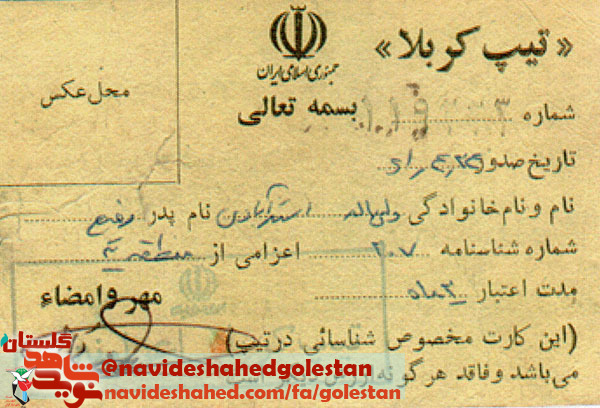 «تیپ کربلا»
جمهوری اسلامی ایران
بسمه تعالی
محل عکس
شماره
تاریخ صدور
نام و نام خانوادگی ولی اله استرآبادی نام پدر رفیع
شماره شناسنامه ۲۰۷ اعزامی از منطقه ۳
مدت اعتبار ۳ ماه
مهر و امضاء
(این کارت مخصوص شناسائی درتیپ)
می باشد و فاقد هر گونه ارزش
نوید شاهد گلستان
@navideshahedgolestan
navideshahed.com/fa/golestan